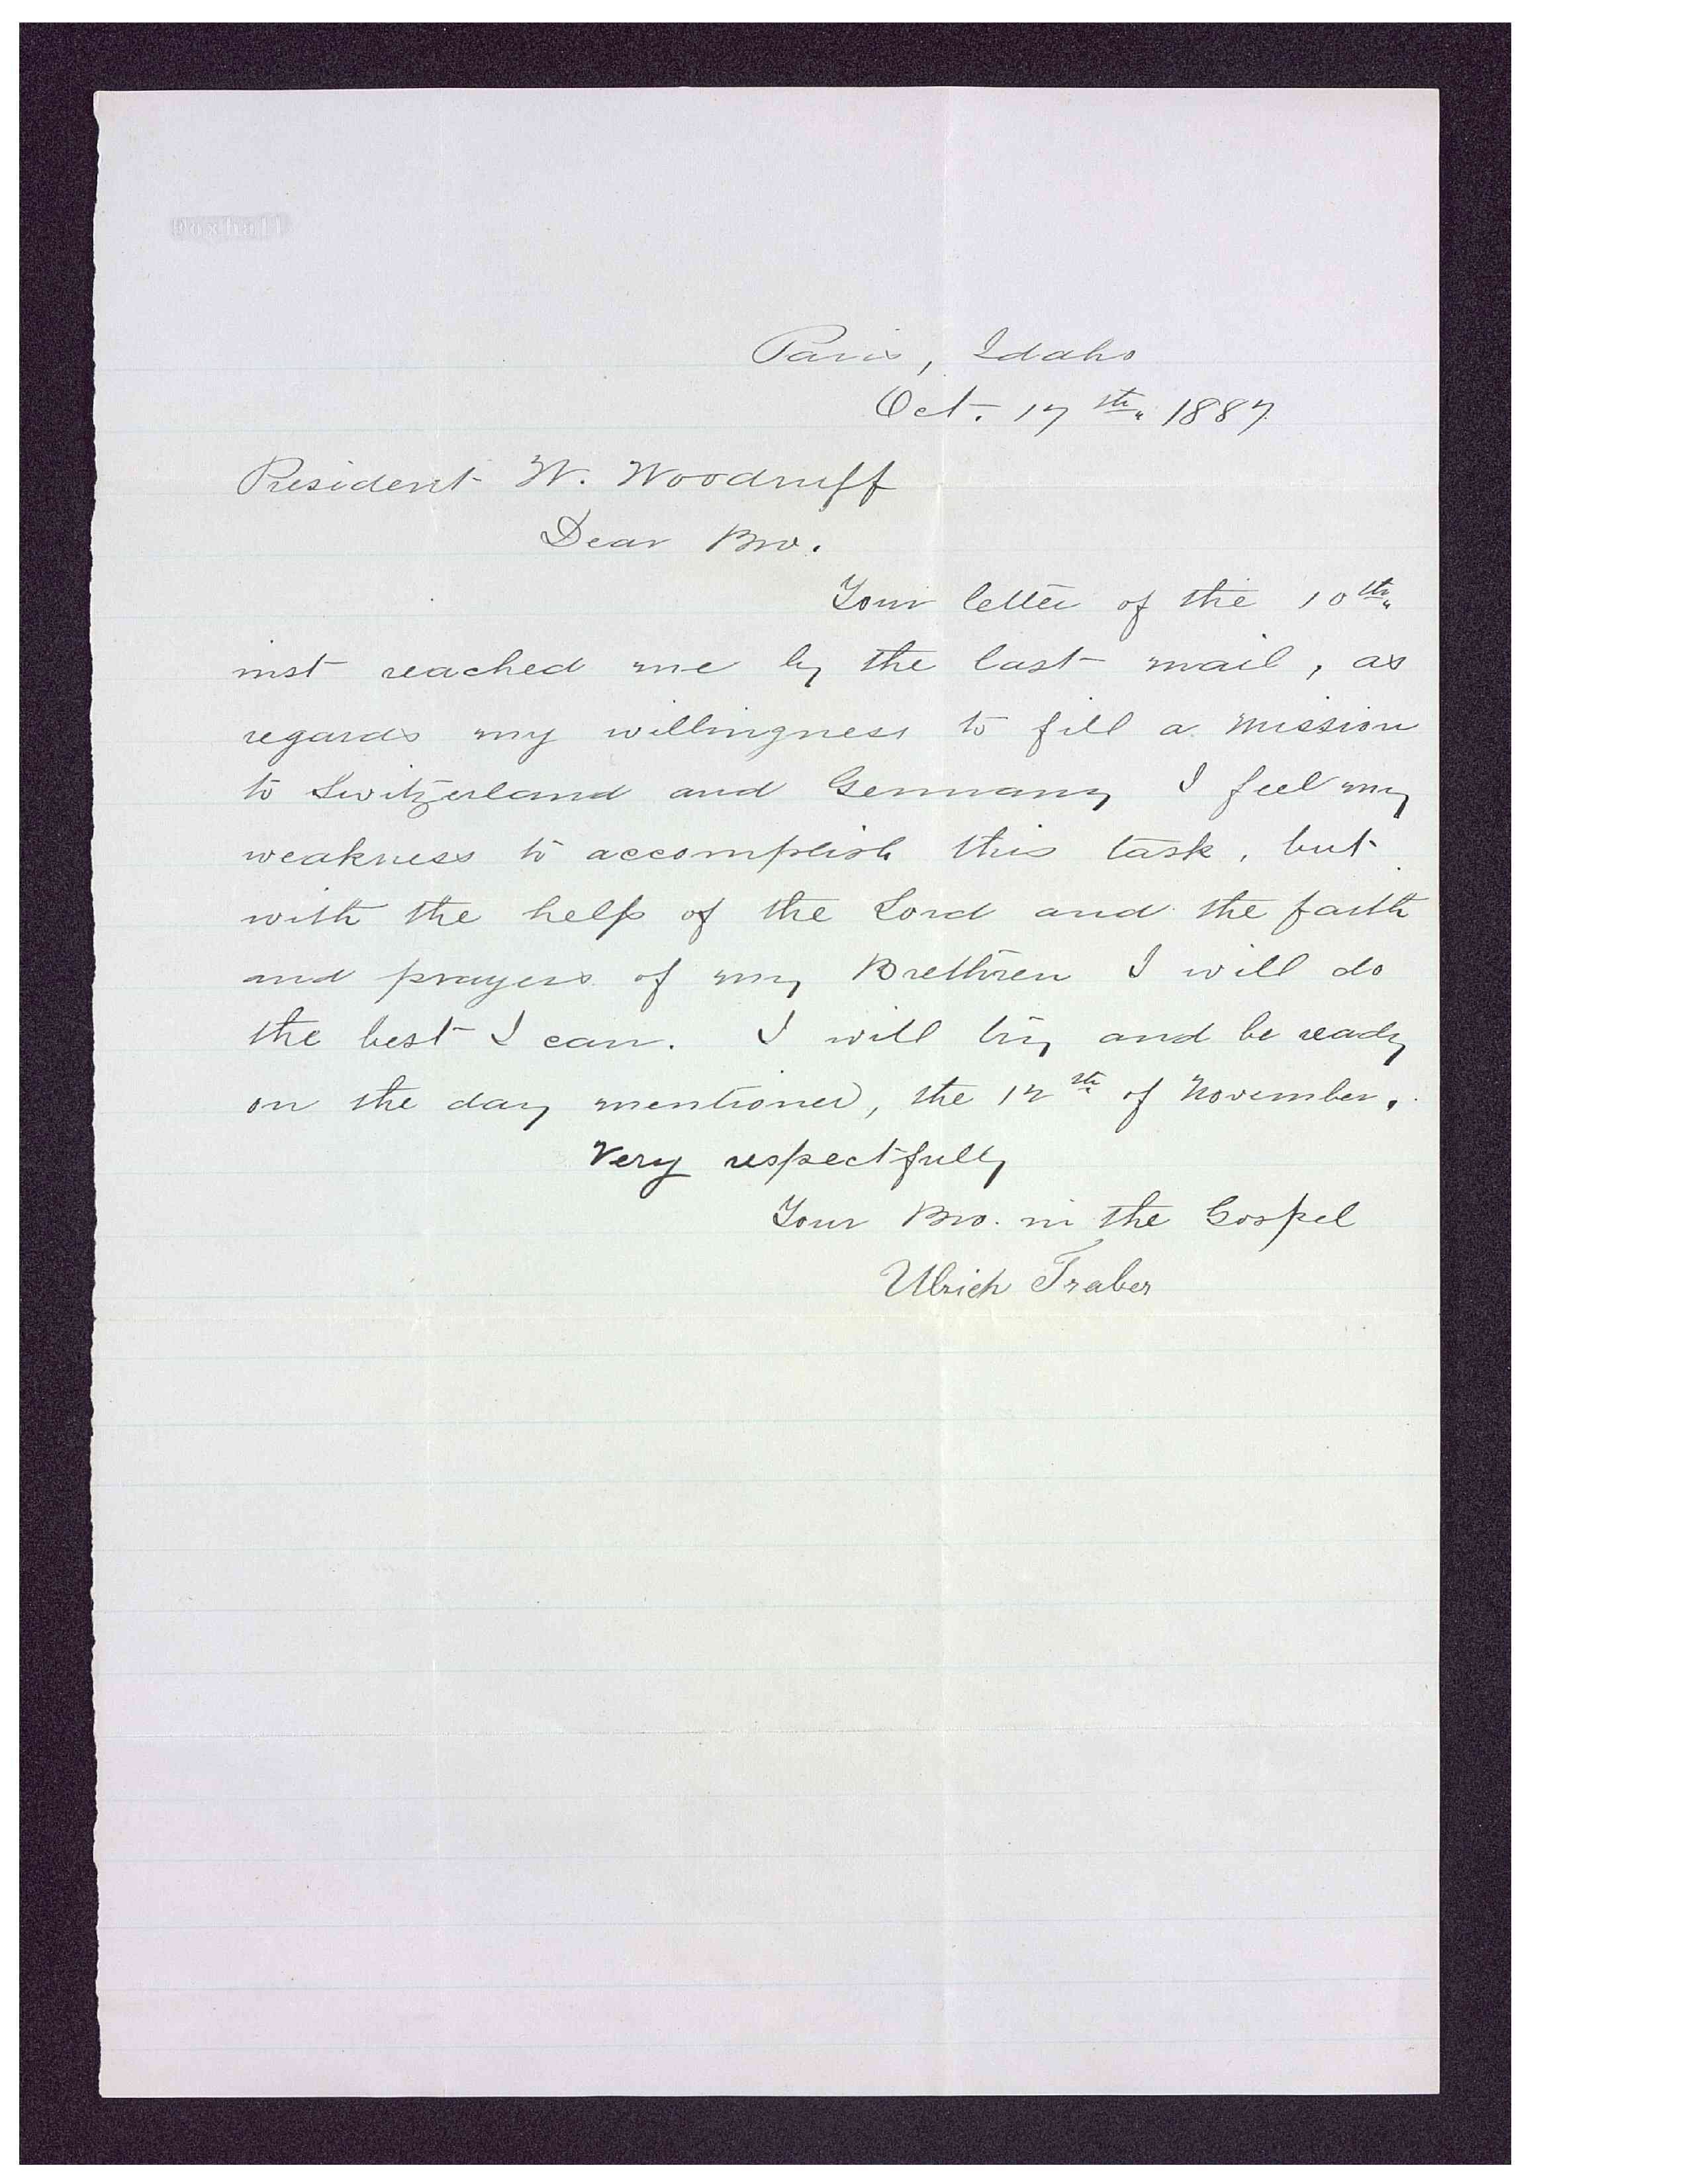 Paris, Idaho
Oct. 17th. 1887.
President W. Woodruff
Dear Bro.
Your letter of the 10th.
inst reached me by the last mail, as
regards my willingness to fill a mission
to Switzerland and Germany I feel my
weakness to accomplish this task, but
with the help of the Lord and the faith
and prayers of my Brethren I will do
the best I can. I will try and be ready
on the day mentioned, the 12th of November.
Very respectfully
Your Bro. in the Gospel
Ulrich Traber